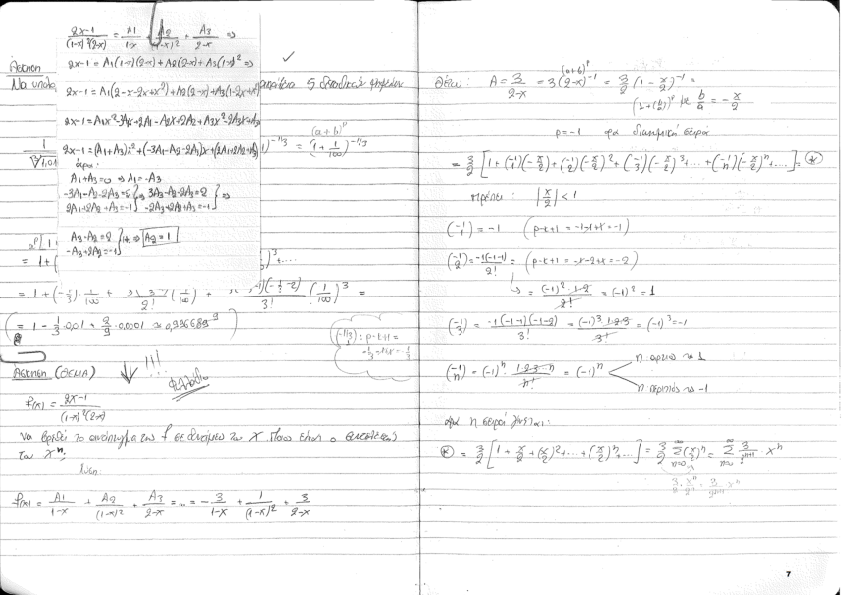 2x-1 / (1-x)²(2-x) = A1/1-x + A2/(1-x)² + A3/2-x ⇒
2x-1 = A1(1-x)(2-x) + A2(2-x) + A3(1-x)² ⇒
2x-1 = A1(2-x-2x+x²) + A2(2-x) + A3(1-2x+x²)
2x-1 = A1x²-3A1x+2A1-A2x+2A2+A3x²-2A3x+A3
2x-1 = (A1+A3)x² + (-3A1-A2-2A3)x + (2A1+2A2+A3)
άρα:
A1+A3=0 ⇒ A1=-A3
-3A1-A2-2A3=2 } ⇒ 3A3-A2-2A3=2 } ⇒
2A1+2A2+A3=-1 } -2A3+2A2+A3=-1 }
A3-A2=2 } ⇒ A2=1
-A3+2A2=-1
Άσκηση
Να υπολο
5 δεκαδικών ψηφίων
(a+b)^p
= (1+1/100)^-1/3
= 1 + (-1/3)·1/100 + (1/100) + 3! (1/100)³ =
(= 1 - 1/3·0,01 + 2/9·0,0001 ≈ 0,996689)
(-1/3 1): p-k+1 =
Άσκηση (ΘΕΜΑ) !!!
f(x) = 2x-1 / (1-x)²(2-x)
να βρεθεί το ανάπτυγμα της f σε δυνάμεις του x. Ποιος είναι ο συντελεστής
του xⁿ;
Λύση:
f(x) = A1/1-x + A2/(1-x)² + A3/2-x = ... = -3/1-x + 1/(1-x)² + 3/2-x
Θέτω: A = 3/2-x = 3(2-x)^-1 = 3/2 (1-x/2)^-1 =
(a+b)^p
(1+(b/a))^p με b/a = -x/2
p=-1 άρα διωνυμική σειρά
= 3/2 [1+(-1 1)(-x/2)+(-1 2)(-x/2)²+(-1 3)(-x/2)³+...+(-1 n)(-x/2)ⁿ+...] = (*)
πρέπει |x/2| < 1
(-1 1) = -1 (p-k+1 = -1-1+1 = -1)
(-1 2) = -1(-1-1)/2! = (p-k+1 = -1-2+1 = -2)
↳ = (-1)²·1·2/2! = (-1)² = 1
(-1 3) = -1(-1-1)(-1-2)/3! = (-1)³·1·2·3/3! = (-1)³ = -1
(-1 n) = (-1)ⁿ·1·2·3···n/n! = (-1)ⁿ
n άρτιος → 1
n περιττός → -1
άρα η σειρά γίνεται:
(*) = 3/2 [1 + x/2 + (x/2)² + ... + (x/2)ⁿ + ...] = 3/2 Σ n=0 ∞ (x/2)ⁿ = Σ n=0 ∞ 3/2ⁿ⁺¹ xⁿ
3/2 · xⁿ/2ⁿ = 3/2ⁿ⁺¹ xⁿ
7